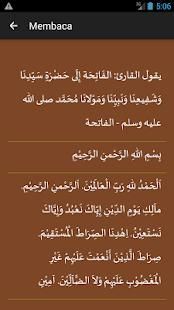 5:06
Membaca
يقول القارئ: الفَاتِحَة إِلَى حَضْرَةِ سَيِّدِنَا
وَشَفِيعِنَا وَنَبِيِّنَا وَمَوْلَانَا مُحَمَّد صلى الله
عليه وسلم - الفاتحة
بِسْمِ اللهِ الرَّحْمنِ الرَّحِيْمِ
اَلْحَمْدُ للهِ رَبِّ الْعَالَمِيْنَ. اَلرَّحْمنِ الرَّحِيْمِ.
مالِكِ يَوْمِ الدِّيْنِ إِيَّاكَ نَعْبُدُ وَإِيَّاكَ
نَسْتَعِيْنُ. اِهْدِنَا الصِّرَاطَ الْمُسْتَقِيْمَ.
صِرَاطَ الَّذِيْنَ أَنْعَمْتَ عَلَيْهِمْ غَيْرِ
الْمَغْضُوْبِ عَلَيْهِمْ وَلاَ الضَّآلِّيْنَ. آمِيْنَ